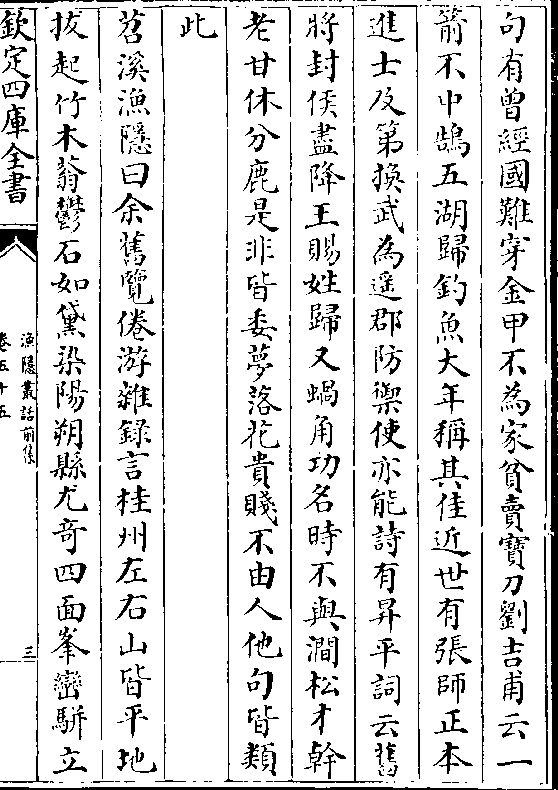 句有曾經國難穿金甲不為家貧賣寶刀劉吉甫云一
箭不中鵠五湖歸釣魚大年稱其佳近世有張師正本
進士及第換武為遥郡防禦使亦能詩有昇平詞云舊
將封侯盡降王賜姓歸又蝸角功名時不與澗松才幹
老甘休分鹿是非皆委夢落花貴賤不由人他句皆類
此
苕溪漁隱曰余舊覽倦游雜録言桂州左右山皆平地
拔起竹木蓊鬱石如黛染陽朔縣尤奇四面峯巒駢立
欽定四庫全書
漁隱叢話前集
卷五十五
三